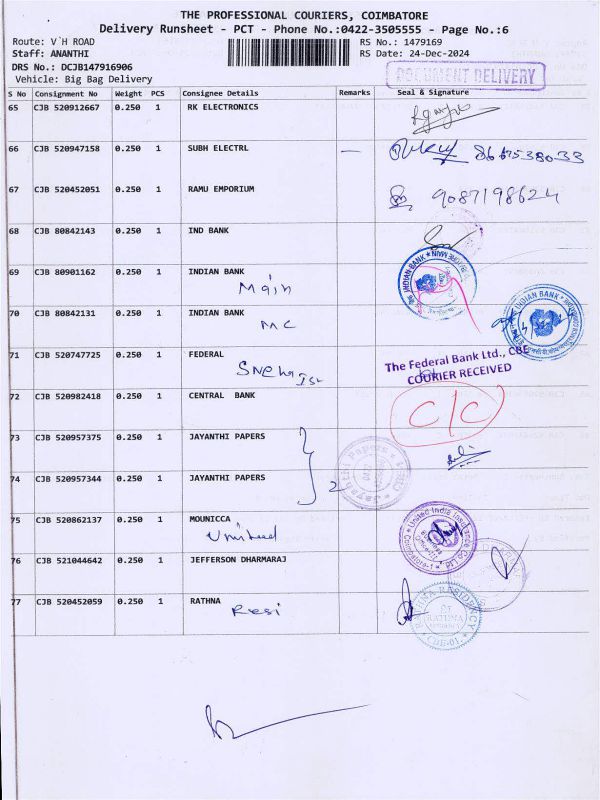 THE PROFESSIONAL COURIERS, COIMBATORE
Delivery Runsheet - PCT - Phone No.:0422-3505555 - Page No.:6
Route: V`H ROAD
Staff: ANANTHI
DRS No.: DCJB147916906
Vehicle: Big Bag Delivery
RS No.: 1479169
RS Date: 24-Dec-2024
DOCUMENT DELIVERY
S No Consignment No Weight PCS Consignee Details Remarks Seal & Signature
65 CJB 520912667 0.250 1 RK ELECTRONICS
66 CJB 520947158 0.250 1 SUBH ELECTRL —
67 CJB 520452051 0.250 1 RAMU EMPORIUM 9087198624
68 CJB 80842143 0.250 1 IND BANK
69 CJB 80901162 0.250 1 INDIAN BANK
Main
INDIAN BANK
70 CJB 80842131 0.250 1 INDIAN BANK
MC
INDIAN BANK
71 CJB 520747725 0.250 1 FEDERAL
The Federal Bank Ltd., CBE
COURIER RECEIVED
72 CJB 520982418 0.250 1 CENTRAL BANK
C/C
73 CJB 520957375 0.250 1 JAYANTHI PAPERS
74 CJB 520957344 0.250 1 JAYANTHI PAPERS
2
Jayanthi Papers
75 CJB 520862137 0.250 1 MOUNICCA
United
United India Insurance Co Ltd
76 CJB 521044642 0.250 1 JEFFERSON DHARMARAJ
77 CJB 520452059 0.250 1 RATHNA
Resi
RATHNA RESIDENCY
RATHNA
CBE-01